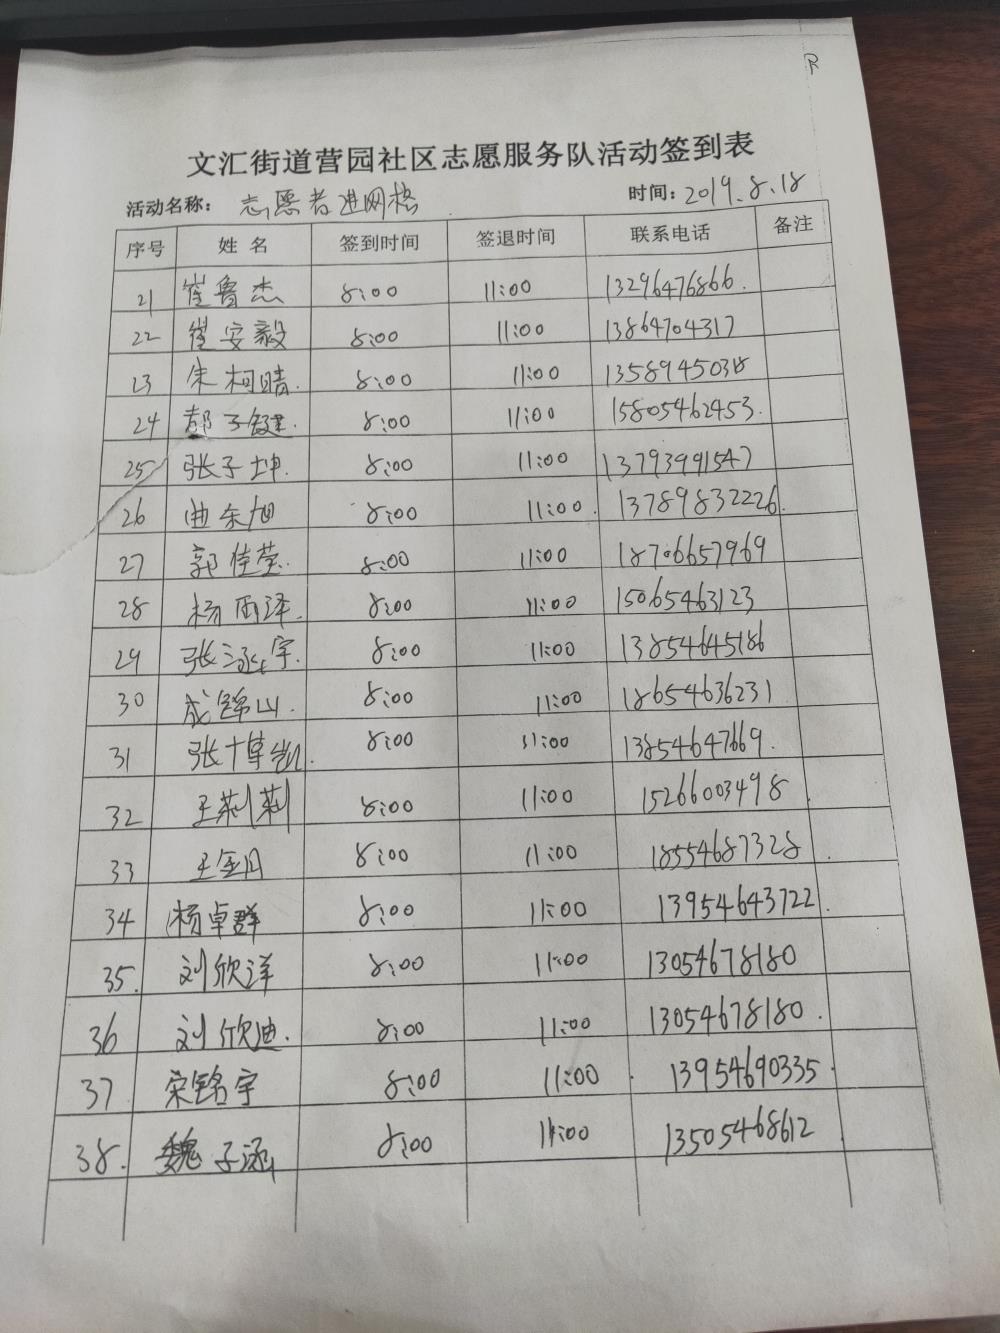 文汇街道营园社区志愿服务队活动签到表
活动名称: 志愿者进网格 时间: 2019.8.18
序号 姓名 签到时间 签退时间 联系电话 备注
21 崔鲁杰 8:00 11:00 13296476866.
22 崔安毅 8:00 11:00 13864704317
23 朱柯晴. 8:00 11:00 13589450318
24 郝子键. 8:00 11:00 15805462453.
25 张子坤. 8:00 11:00 13793991547
26 曲东旭 8:00 11:00. 13789832226
27 郭佳莹. 8:00 11:00 18706657969
28 杨雨泽. 8:00 11:00 15065463123
29 张泳宇. 8:00 11:00 13854645186
30 成锦山. 8:00 11:00 18654636231
31 张博凯. 8:00 11:00 13854647669.
32 王莉莉 8:00 11:00 15266003498
33 王金月 8:00 11:00 18554687328
34 杨卓群 8:00 11:00 13954643722
35. 刘欣洋 8:00 11:00 13054678180
36 刘欣迪. 8:00 11:00 13054678180.
37 宋铭宇 8:00 11:00 13954690335.
38. 魏子涵 8:00 11:00 13505468612